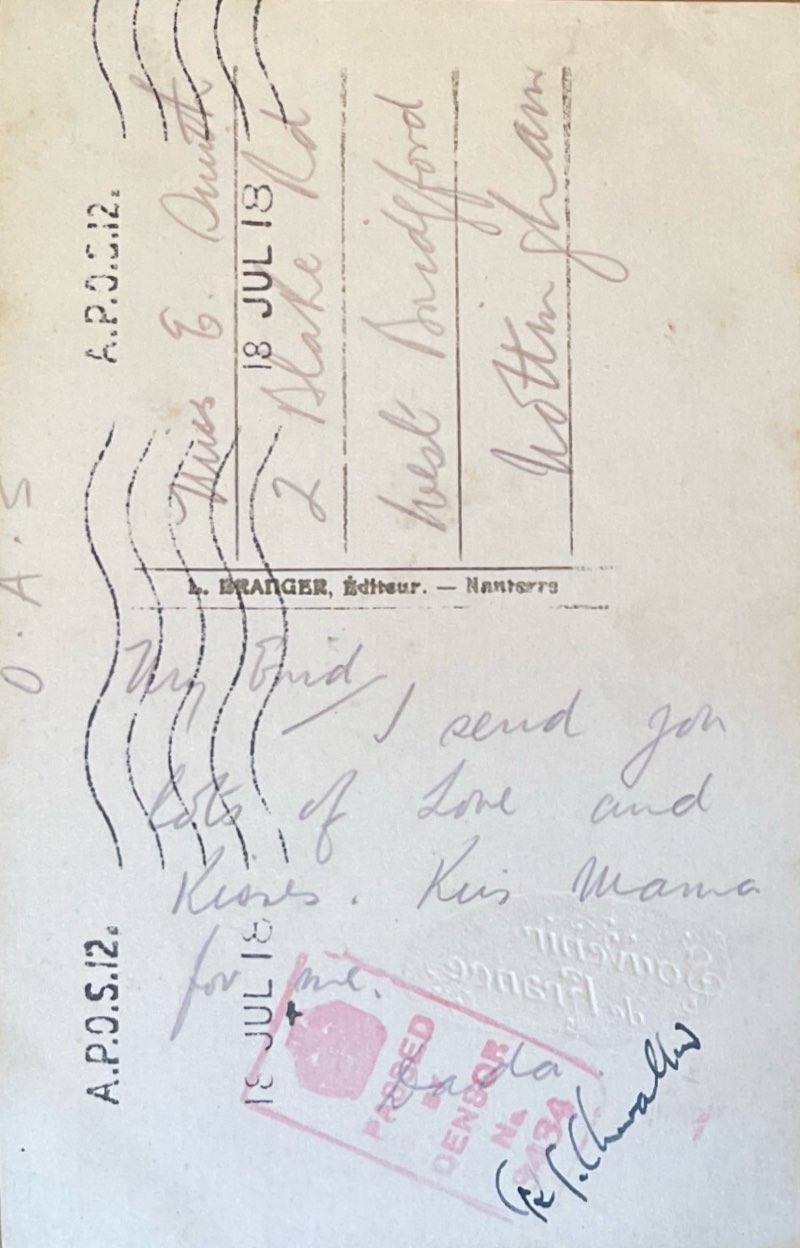 O.A.S
A.P.O.S.12.
18 JUL 18
Miss E. Smith
2 Blake Rd
West Bridgford
Nottingham
L. BRANGER, Éditeur. — Nanterre
My Enid
I send you
lots of Love and
Kisses. Kiss Mama
for me.
Dada
A.P.O.S.12.
18 JUL 18
Souvenir
de France
PASSED
BY
CENSOR
No